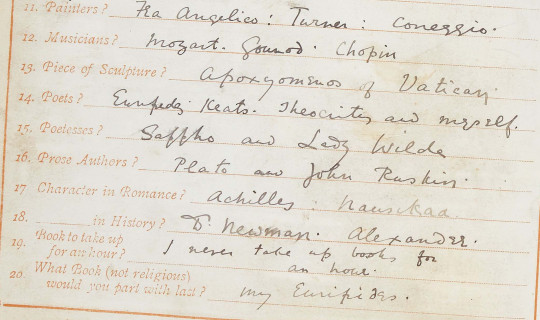 11. Painters? Fra Angelico: Turner: Coneggio.
12. Musicians? Mozart. Gounod. Chopin
13. Piece of Sculpture? Apoxyomenos of Vatican
14. Poets? Euripides Keats. Theocritus and myself.
15. Poetesses? Sappho and Lady Wilde
16. Prose Authors? Plato and John Ruskin.
17 Character in Romance? Achilles. Nausikaa
18. in History? Dr. Newman. Alexander.
19. Book to take up
for an hour? I never take up books for
an hour.
20. What Book (not religious)
would you part with last? my Euripides.